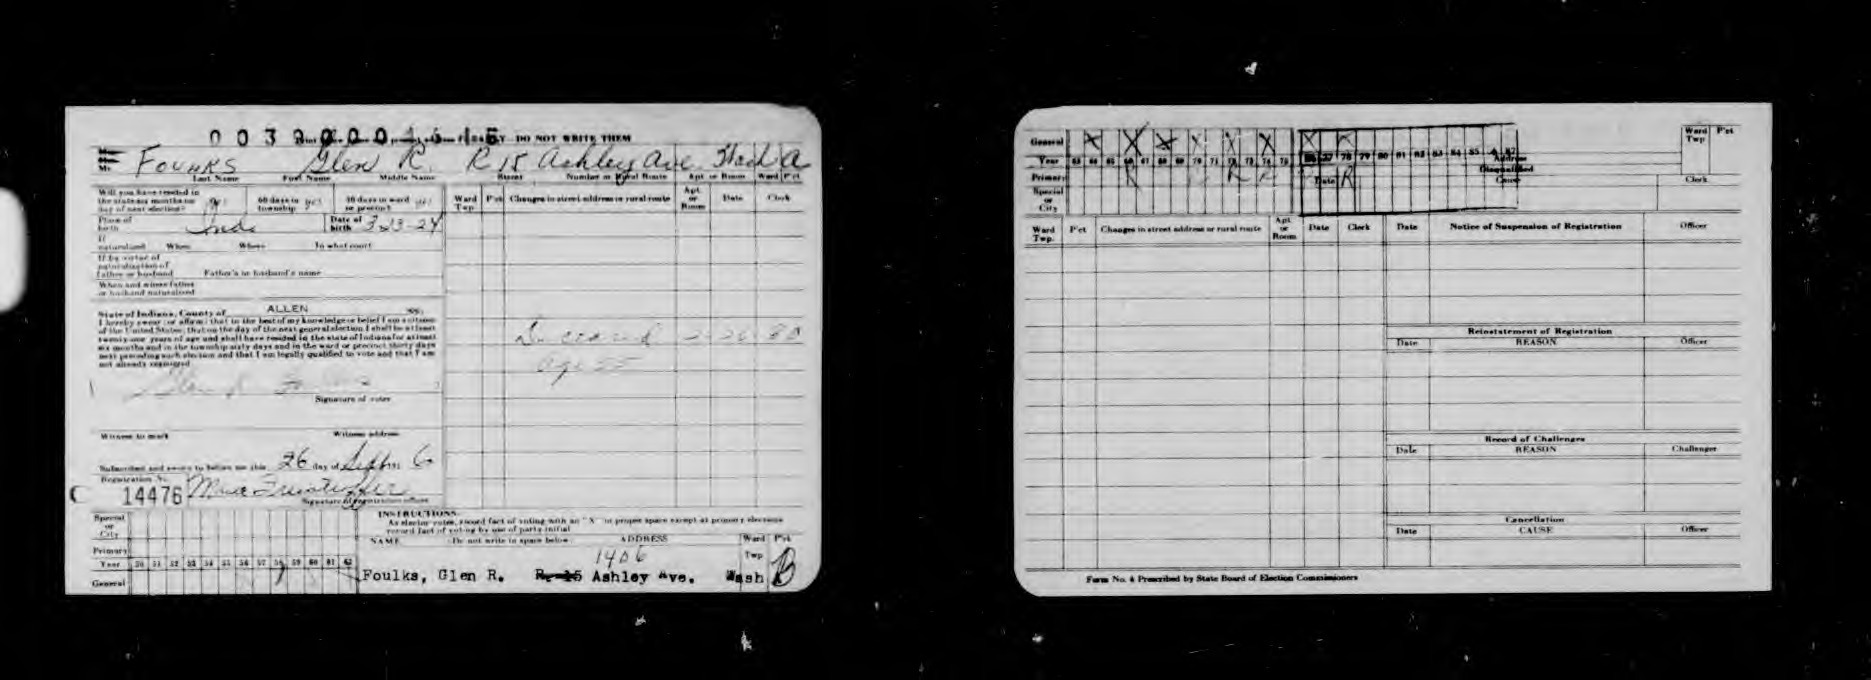 DO NOT WRITE THEM
FOULKS Glen R. R 15 Ashley Ave Wash A
Last Name First Name Middle Name Street Number or Rural Route Apt or Room Ward P'ct
Will you have resided in
the state six months on
day of next election? yes
60 days in
township yes
30 days in ward
or precinct yes
Ward
Twp
P'ct
Changes in street address or rural route
Apt
or
Room
Date
Clerk
Place of
birth Ind.
Date of
birth 3-23-24
If
naturalized When Where In what court
If by virtue of
naturalization of
father or husband Father's or husband's name
When and where father
or husband naturalized
State of Indiana, County of ALLEN ss:
I hereby swear (or affirm) that to the best of my knowledge or belief I am a citizen
of the United States; that on the day of the next general election I shall be at least
twenty-one years of age and shall have resided in the state of Indiana for at least
six months and in the township sixty days and in the ward or precinct thirty days
next preceding such election and that I am legally qualified to vote and that I am
not already registered
Signature of voter
Deceased 2-26-80
age 55
Witness to mark Witness address
Subscribed and sworn to before me this 26 day of Sept 19
Registration No.
C 14476
Signature of registration officer
Special
or
City
Primary
Year 50 51 52 53 54 55 56 57 58 59 60 61 62
General
INSTRUCTIONS
As elector votes, record fact of voting with an "X" in proper space except at primary elections
record fact of voting by use of party initial
NAME (Do not write in space below) ADDRESS Ward P'ct
1406 Twp B
Foulks, Glen R. R. 15 Ashley Ave. Wash
General X X X X X X X X
Year 63 64 65 66 67 68 69 70 71 72 73 74 75 76 77 78 79 80 81 82 83 84 85 87
Primary R R R R
Special
or
City
Address
Disqualified
Date
Cause
Clerk
Ward
Twp
P'ct
Ward
Twp.
P'ct
Changes in street address or rural route
Apt
or
Room
Date
Clerk
Date Notice of Suspension of Registration Officer
Reinstatement of Registration
Date REASON Officer
Record of Challenges
Date REASON Challenger
Cancellation
Date CAUSE Officer
Form No. 4 Prescribed by State Board of Election Commissioners